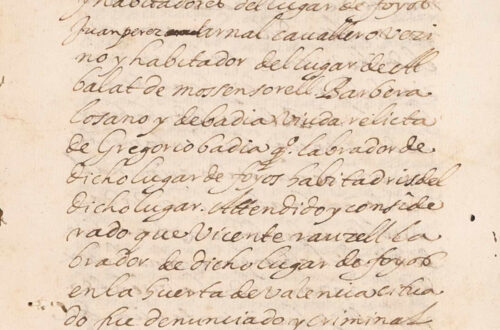 y habitadores del lugar de foyos
Juan perez arnal cavallero vezi
no y habitador del lugar de Al
balat de mossen sorell Barbera
losano y de badia viuda relicta
de Gregorio badia qº. labrador de
dicho lugar de foyos habitadris del
dicho lugar. Attendido y conside
rado que Vicente rauzell la
brador de dicho lugar de foyos
en la huerta de valencia citua
do fue denunciado y criminal